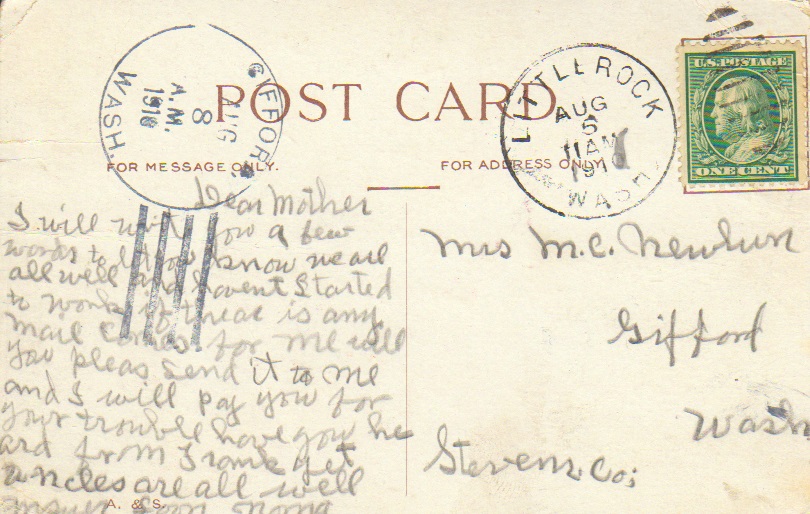 POST CARD
FOR MESSAGE ONLY.
FOR ADDRESS ONLY.
GIFFORD,
AUG
8
A.M.
1910
WASH.
LITTLEROCK
AUG
6
11AM
1910
WASH.
U.S. POSTAGE
ONE CENT
Dear Mother
I will writ you a few
words to let you know we all
all well and havent Started
to work if there is any
mail comes for me will
you pleas send it to me
and I will pay you for
your trouble have you he
ard from Frank yet
uncles are all well
answer soon
A. & S.
Mrs M.C.
Gifford
Wash
Stevens.Co;